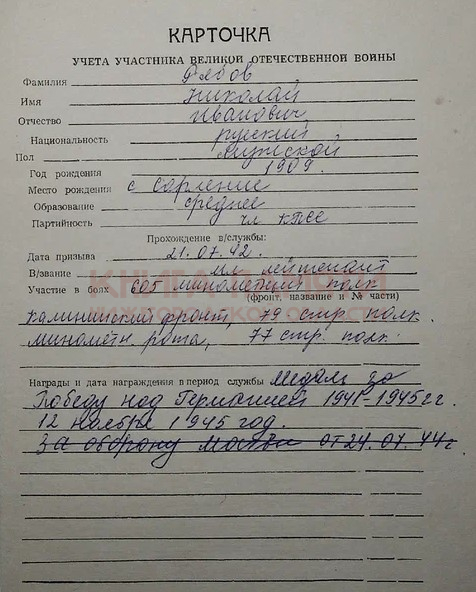 КАРТОЧКА
УЧЕТА УЧАСТНИКА ВЕЛИКОЙ ОТЕЧЕСТВЕННОЙ ВОЙНЫ
Фамилия Рябов
Имя Николай
Отчество Иванович
Национальность русский
Пол мужской
Год рождения 1909.
Место рождения с
Образование среднее
Партийность чл КПСС
Прохождение в/службы:
Дата призыва 21.07.42.
В/звание мл лейтенант
Участие в боях 605 минометный полк
(фронт, название и № части)
Калининский фронт, 79 стр. полк.
минометн. рота, 77 стр. полк.
Награды и дата награждения в период службы Медаль За
Победу над Германией 1941-1945 гг.
12 ноября 1945 год.
За оборону Москвы от 24.07.44 г.
КНИГА ПАМЯТИ